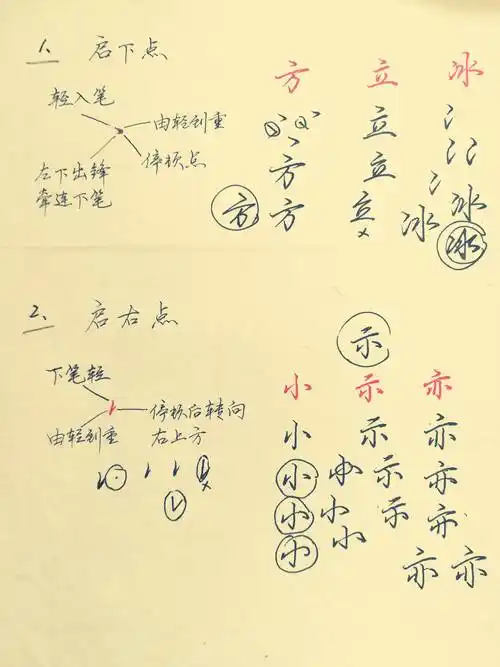 1. 启下点
方 立 冰
轻入笔
由轻到重
停顿点
左下出锋
牵连下笔
立
方 立
方 方 立 冰 冰
冰
2. 启右点
示
小 示 亦
下笔轻
停顿后转向
右上方
由轻到重
小 示 亦
小 小 示 亦
小 小 示 亦
小 小
亦 亦